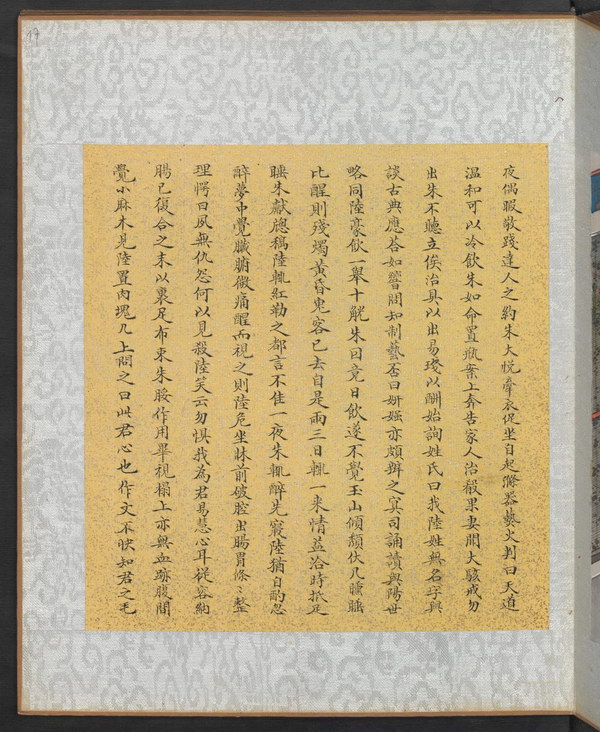 夜偶暇敬踐達人之約朱大悅牽衣促坐自起滌器爇火判曰天道
溫和可以冷飲朱如命置瓶案上奔告家人治殽果妻聞大駭戒勿
出朱不聽立俟治具以出易琖以酬始詢姓氏曰我陸姓無名字與
談古典應荅如響問知制藝否曰妍媸亦頗辨之冥司誦讀與陽世
略同陸豪飲一舉十觥朱因竟日飲遂不覺玉山傾頹伏几醺睡
比醒則殘燭黃昏鬼客已去自是兩三日輒一来情益洽時抵足
臥朱獻窗稿陸輒紅勒之都言不佳一夜朱輒醉先寢陸猶自酌忽
醉夢中覺臟腑微痛醒而視之則陸危坐牀前破腔出腸胃條〻整
理愕曰夙無仇怨何以見殺陸笑云勿惧我為君易慧心耳從容納
腸已復合之末以裹足布束朱腰作用畢視榻上亦無血跡腹間
覺小麻木見陸置肉塊几上問之曰此君心也作文不快知君之毛